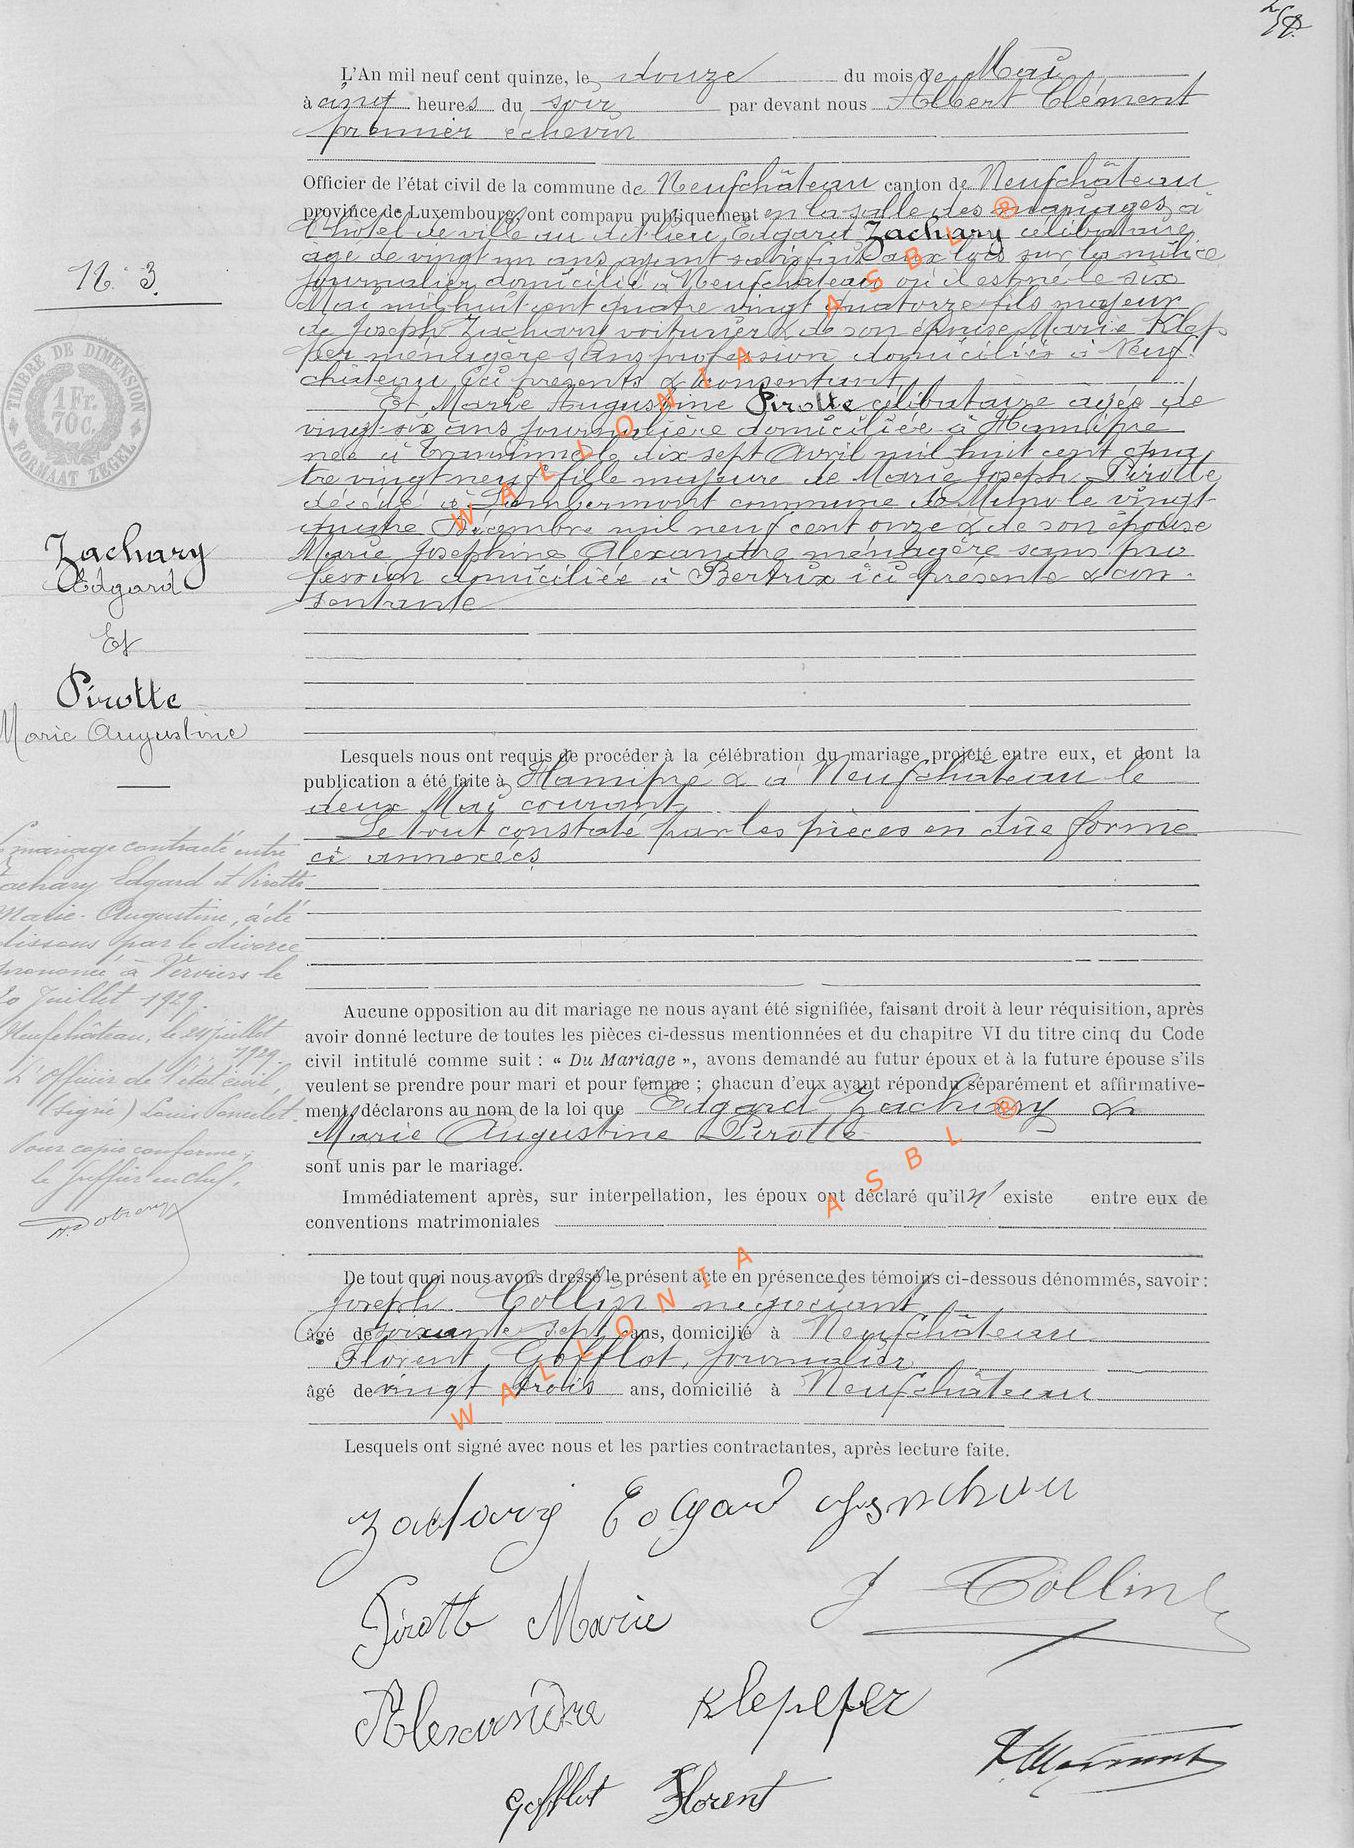 L'An mil neuf cent quinze, le douze du mois de Mai
à cinq heures du soir par devant nous Albert Clément
premier échevin
Officier de l'état civil de la commune de Neufchâteau canton de Neufchâteau
province de Luxembourg, ont comparu publiquement en la salle des mariages à
l'hôtel de ville au dit lieu, Edgard Zachary célibataire
âgé de vingt un ans ayant satisfait aux lois sur la milice
journalier domicilié à Neufchâteau où il est né le six
Mai mil huit cent quatre vingt quatorze fils majeur
de Joseph Zachary voiturier & de son épouse Marie Klep
fer ménagère sans profession domiciliés à Neuf
château ici présents & consentant
Et Marie Augustine Pirotte célibataire âgée de
vingt-six ans journalière domiciliée à Hamipré
née à le dix sept Avril mil huit cent qua
tre vingt neuf fille majeure de Marie Joseph Pirotte
décédé à Lambermont commune de Muno le vingt-
quatre Décembre mil neuf cent onze & de son épouse
Marie Joséphine Alexandre ménagère sans pro
fession domiciliée à Bertrix ici présente & con-
sentante
N° 3
TIMBRE DE DIMENSION
1 Fr.
70 c.
FORMAAT ZEGEL
Zachary
Edgard
Et
Pirotte
Marie Augustine
Lesquels nous ont requis de procéder à la célébration du mariage projeté entre eux, et dont la
publication a été faite à Hamipré & à Neufchâteau le
deux Mai courant
Le tout constaté par les pièces en dûe forme
ci annexées
Le mariage contracté entre
Zachary Edgard et Pirotte
Marie-Augustine, a été
dissous par le divorce
prononcé à Verviers le
20 Juillet 1929.
Neufchâteau, le 24 juillet
1929.
L'officier de l'état civil,
(signé) Louis Poncelet
Pour copie conforme,
le greffier en chef,
Aucune opposition au dit mariage ne nous ayant été signifiée, faisant droit à leur réquisition, après
avoir donné lecture de toutes les pièces ci-dessus mentionnées et du chapitre VI du titre cinq du Code
civil intitulé comme suit : « Du Mariage », avons demandé au futur époux et à la future épouse s'ils
veulent se prendre pour mari et pour femme ; chacun d'eux ayant répondu séparément et affirmative-
ment, déclarons au nom de la loi que Edgard Zachary &
Marie Augustine Pirotte
sont unis par le mariage.
Immédiatement après, sur interpellation, les époux ont déclaré qu'il n'existe entre eux de
conventions matrimoniales
De tout quoi nous avons dressé le présent acte en présence des témoins ci-dessous dénommés, savoir :
Joseph Collin négociant
âgé de soixante sept ans, domicilié à Neufchâteau
Florent Gofflot, journalier
âgé de vingt trois ans, domicilié à Neufchâteau
Lesquels ont signé avec nous et les parties contractantes, après lecture faite.
Zachary Edgard
Pirotte Marie J Collin
Alexandre Klepfer
Gofflot Florent
WALLONIA ASBL ®
WALLONIA ASBL ®